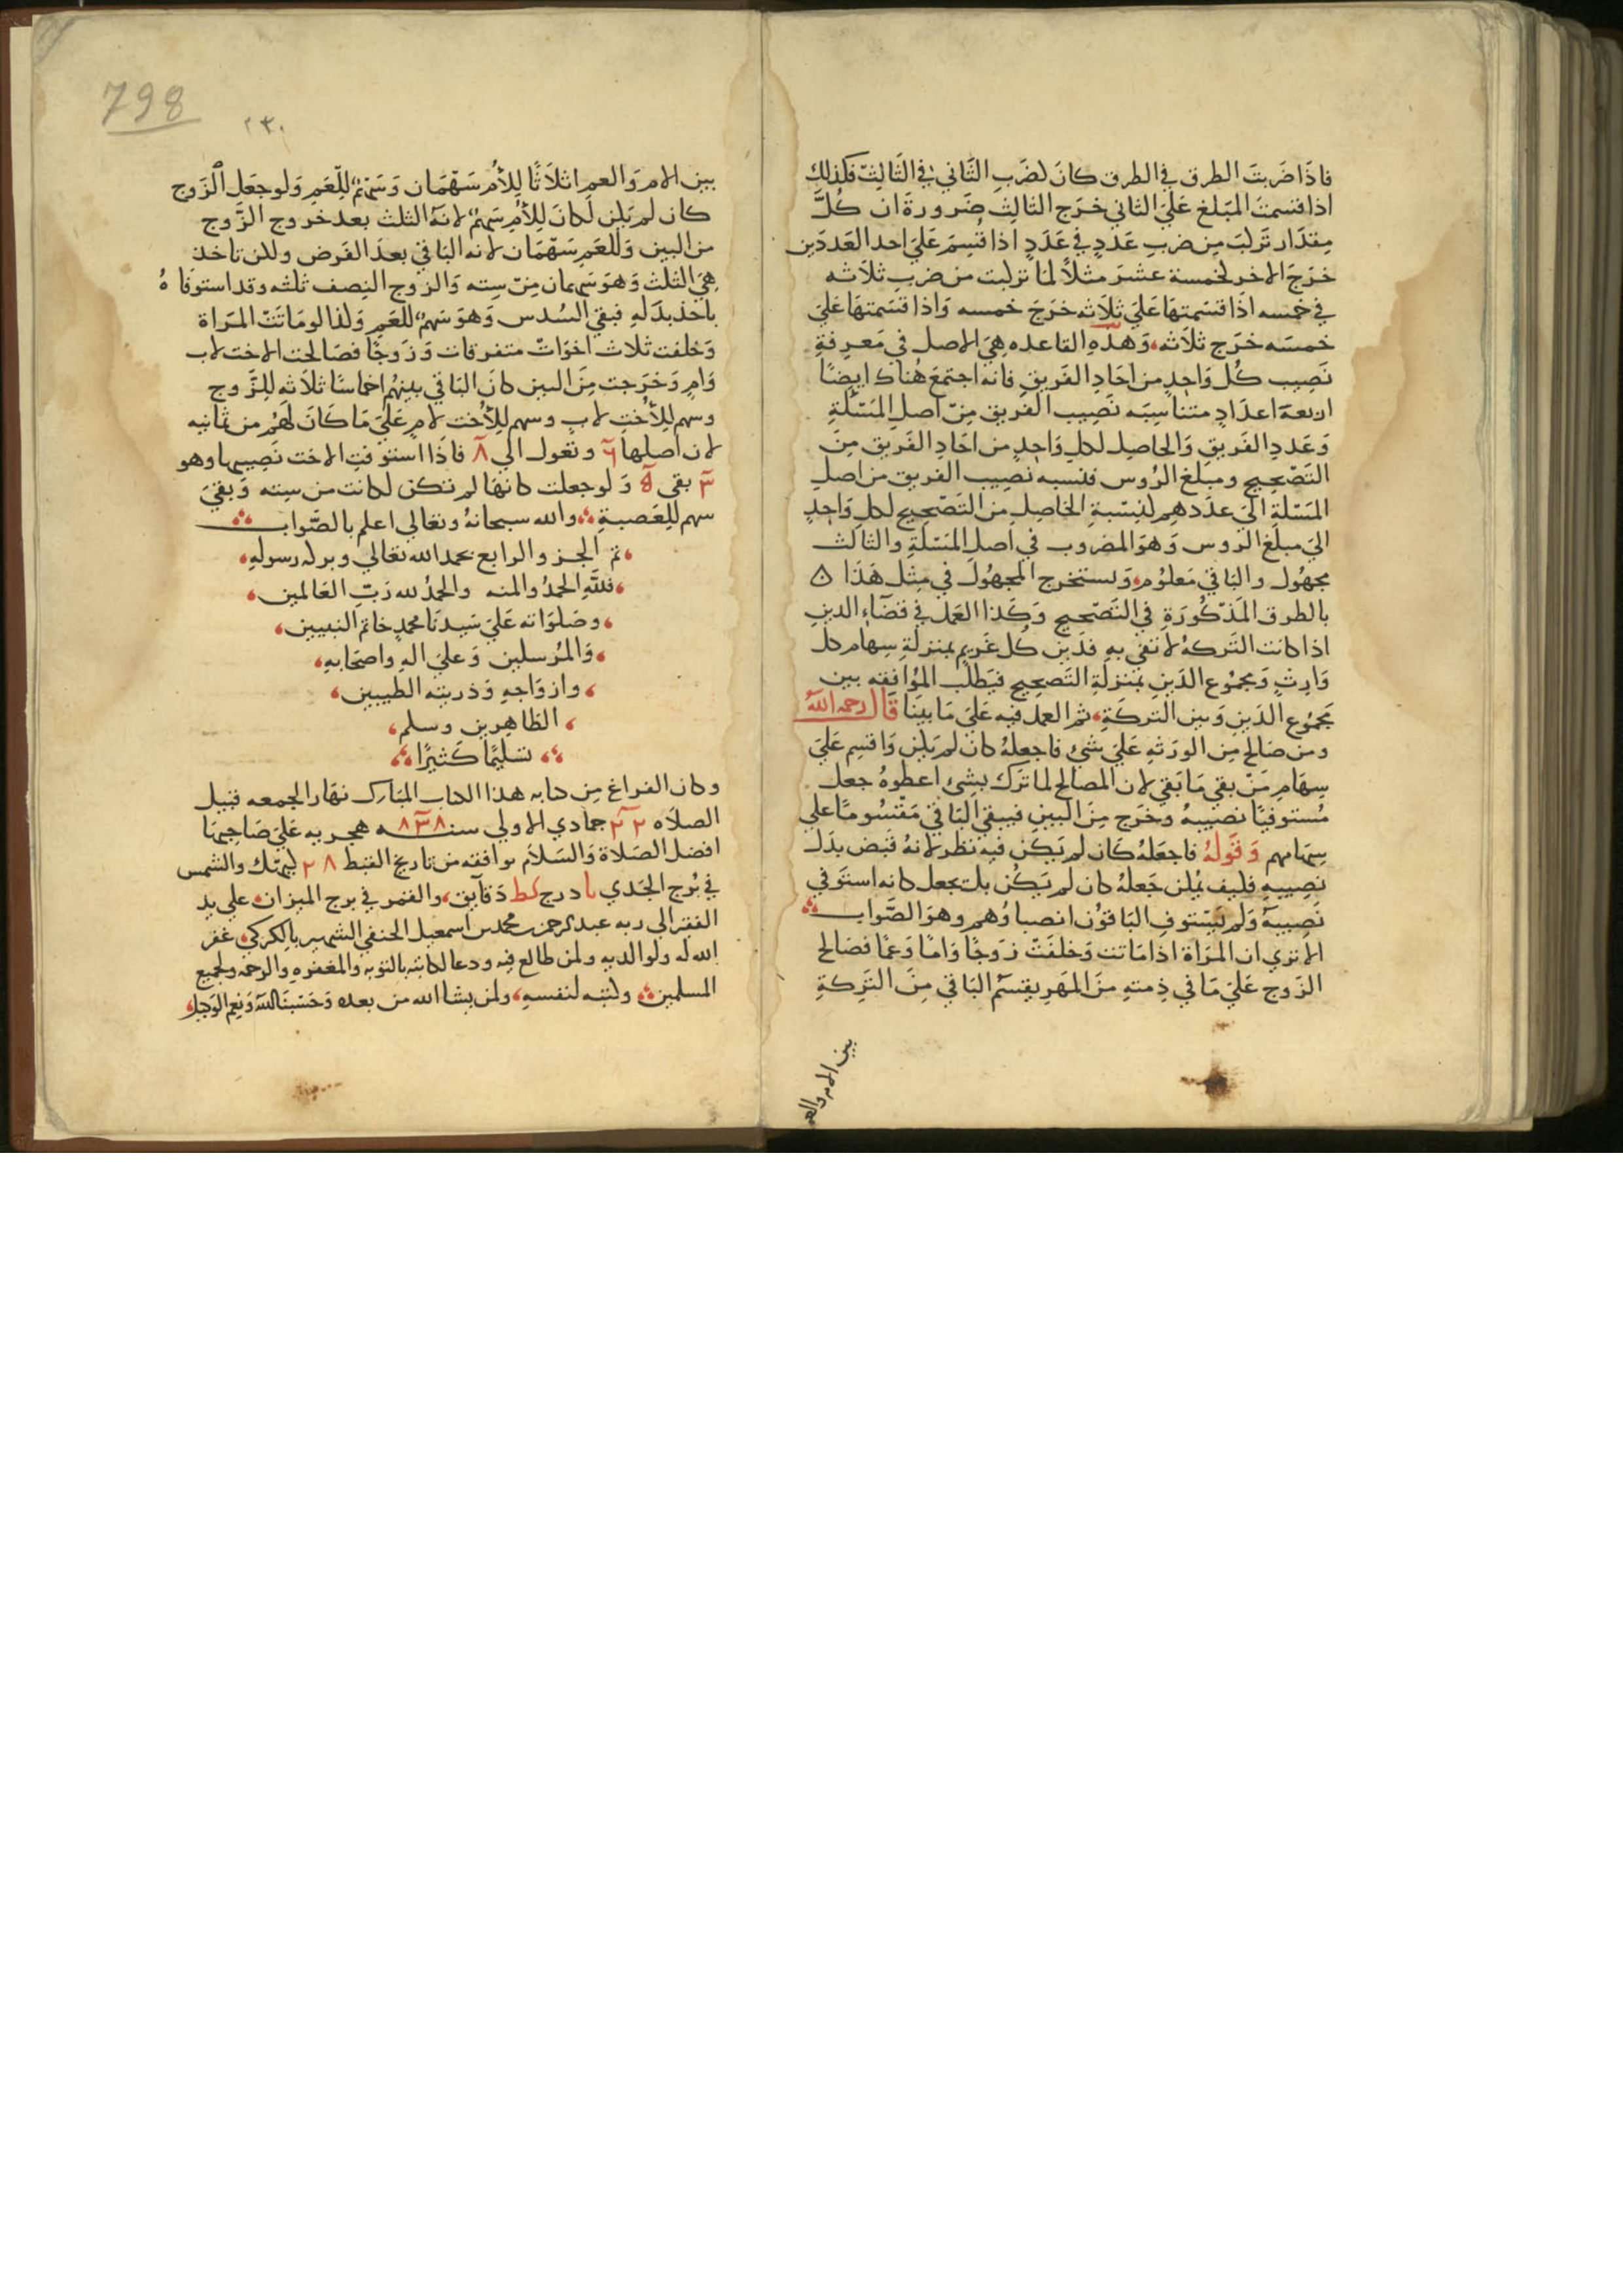 فاذا ضربت الطرف في الطرف كان لضرب الثاني في الثالث فكذلك
اذا قسمت المبلغ علي الثاني خرج الثالث ضرورة ان كل
مقدار تركب من ضرب عدد في عدد اذا قسم علي احد العددين
خرج الاخر كخمسة عشر مثلا لما تركبت من ضرب ثلاثه
في خمسه اذا قسمتها علي ثلاثه خرج خمسه واذا قسمتها علي
خمسه خرج ثلاثه، وهذه القاعده هي الاصل في معرفة
نصيب كل واحد من احاد الفريق فانه اجتمع هناك ايضا
اربعة اعداد متناسبه نصيب الفريق من اصل المسئلة
وعدد الفريق والحاصل لكل واحد من احاد الفريق من
التصحيح ومبلغ الروس فنسبه نصيب الفريق من اصل
المسئلة الي عددهم كنسبة الحاصل من التصحيح لكل واحد
الي مبلغ الروس وهو المضروب في اصل المسئلة والثالث
مجهول والباقي معلوم، ويستخرج المجهول في مثل هذا ۵
بالطرق المذكورة في التصحيح وكذا العمل في قضاء الدين
اذا كانت التركة لا تفي به فدين كل غريم بمنزلة سهام كل
وارث ومجموع الدين بمنزلة التصحيح فيطلب الموافقه بين
مجموع الدين وبين التركة، ثم العمل فيه علي ما بينا قال رحمه الله
ومن صالح من الورثه علي شئ فاجعله كان لم يكن واقسم علي
سهام من بقي ما بقي لان المصالح لما ترك بشئ اعطوه جعل
مستوفيا نصيبه وخرج من البين فيبقي الباقي مقسوما علي
سهامهم وقوله فاجعله كان لم يكن فيه نظر لانه قبض بدل
نصيبه فكيف يمكن جعله كان لم يكن بل يجعل كانه استوفي
نصيبه ولم يستوف الباقون انصباوهم وهو الصواب
الا تري ان المراة اذا ماتت وخلفت زوجا واما وعما فصالح
الزوج علي ما في ذمته من المهر يقسم الباقي من التركة
بين الام والعم
798
٢٣٠
بين الام والعم اثلاثا للام سهمان وسهم للعم ولو جعل الزوج
كان لم يكن لكان للام سهم لانه الثلث بعد خروج الزوج
من البين وللعم سهمان لانه الباقي بعد الفرض ولكن تاخذ
هي الثلث وهو سهمان من سته والزوج النصف ثلثه وقد استوفاه
باخذ بدله فبقي السدس وهو سهم للعم وكذا لو ماتت المراة
وخلفت ثلاث اخوات متفرقات وزوجا فصالحت الاخت لاب
وام وخرجت من البين كان الباقي بينهم اخماسا ثلاثه للزوج
وسهم للاخت لاب وسهم للاخت لام علي ما كان لهم من ثمانيه
لان اصلها ٦ وتعول الي ٨ فاذا استوفت الاخت نصيبها وهو
٣ بقي ۵ ولو جعلت كانها لم تكن لكانت من سته وبقي
سهم للعصبة والله سبحانه وتعالي اعلم بالصواب
تم الجزو الرابع بحمد الله تعالي وبركه رسوله
فلله الحمد والمنه والحمد لله رب العالمين
وصلواته علي سيدنا محمد خاتم النبيين
والمرسلين وعلي اله واصحابه
وازواجه وذريته الطيبين
الطاهرين وسلم
تسليما كثيرا
وكان الفراغ من كتابه هذا الكتاب المبارك نهار الجمعه قبيل
الصلاه ٢٢ جمادي الاولي سنه ٨٣٨ هجريه علي صاحبها
افضل الصلاة والسلام توافقه من تاريخ القبط ٢٨ كيهك والشمس
في برج الجدي درج كط دقايق، والقمر في برج الميزان علي يد
الفقير الي ربه عبد الرحمن محمد بن اسمعيل الحنفي الشهير بالكركي غفر
الله له ولوالديه ولمن طالع فيه ودعا لكاتبه بالتوبه والمغفره والرحمه ولجميع
المسلمين وكتبه لنفسه، ولمن يشا الله من بعده وحسبنا الله ونعم الوكيل